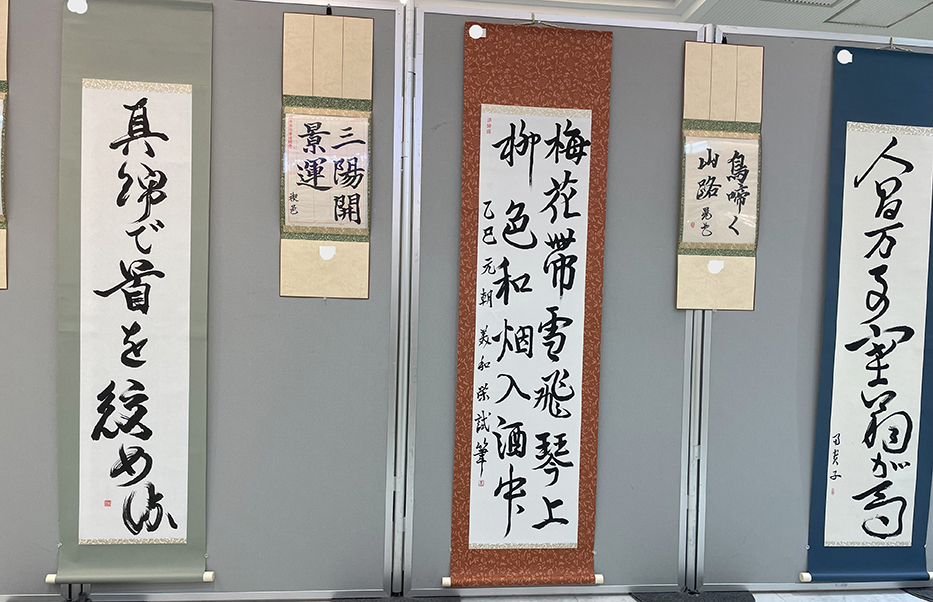 真綿で首を絞める
三陽開
景運
梅花帯雪飛琴上
柳色和烟入酒中
乙巳元朝 美和栄試筆
鳥啼く
山路
人間万事塞翁が馬